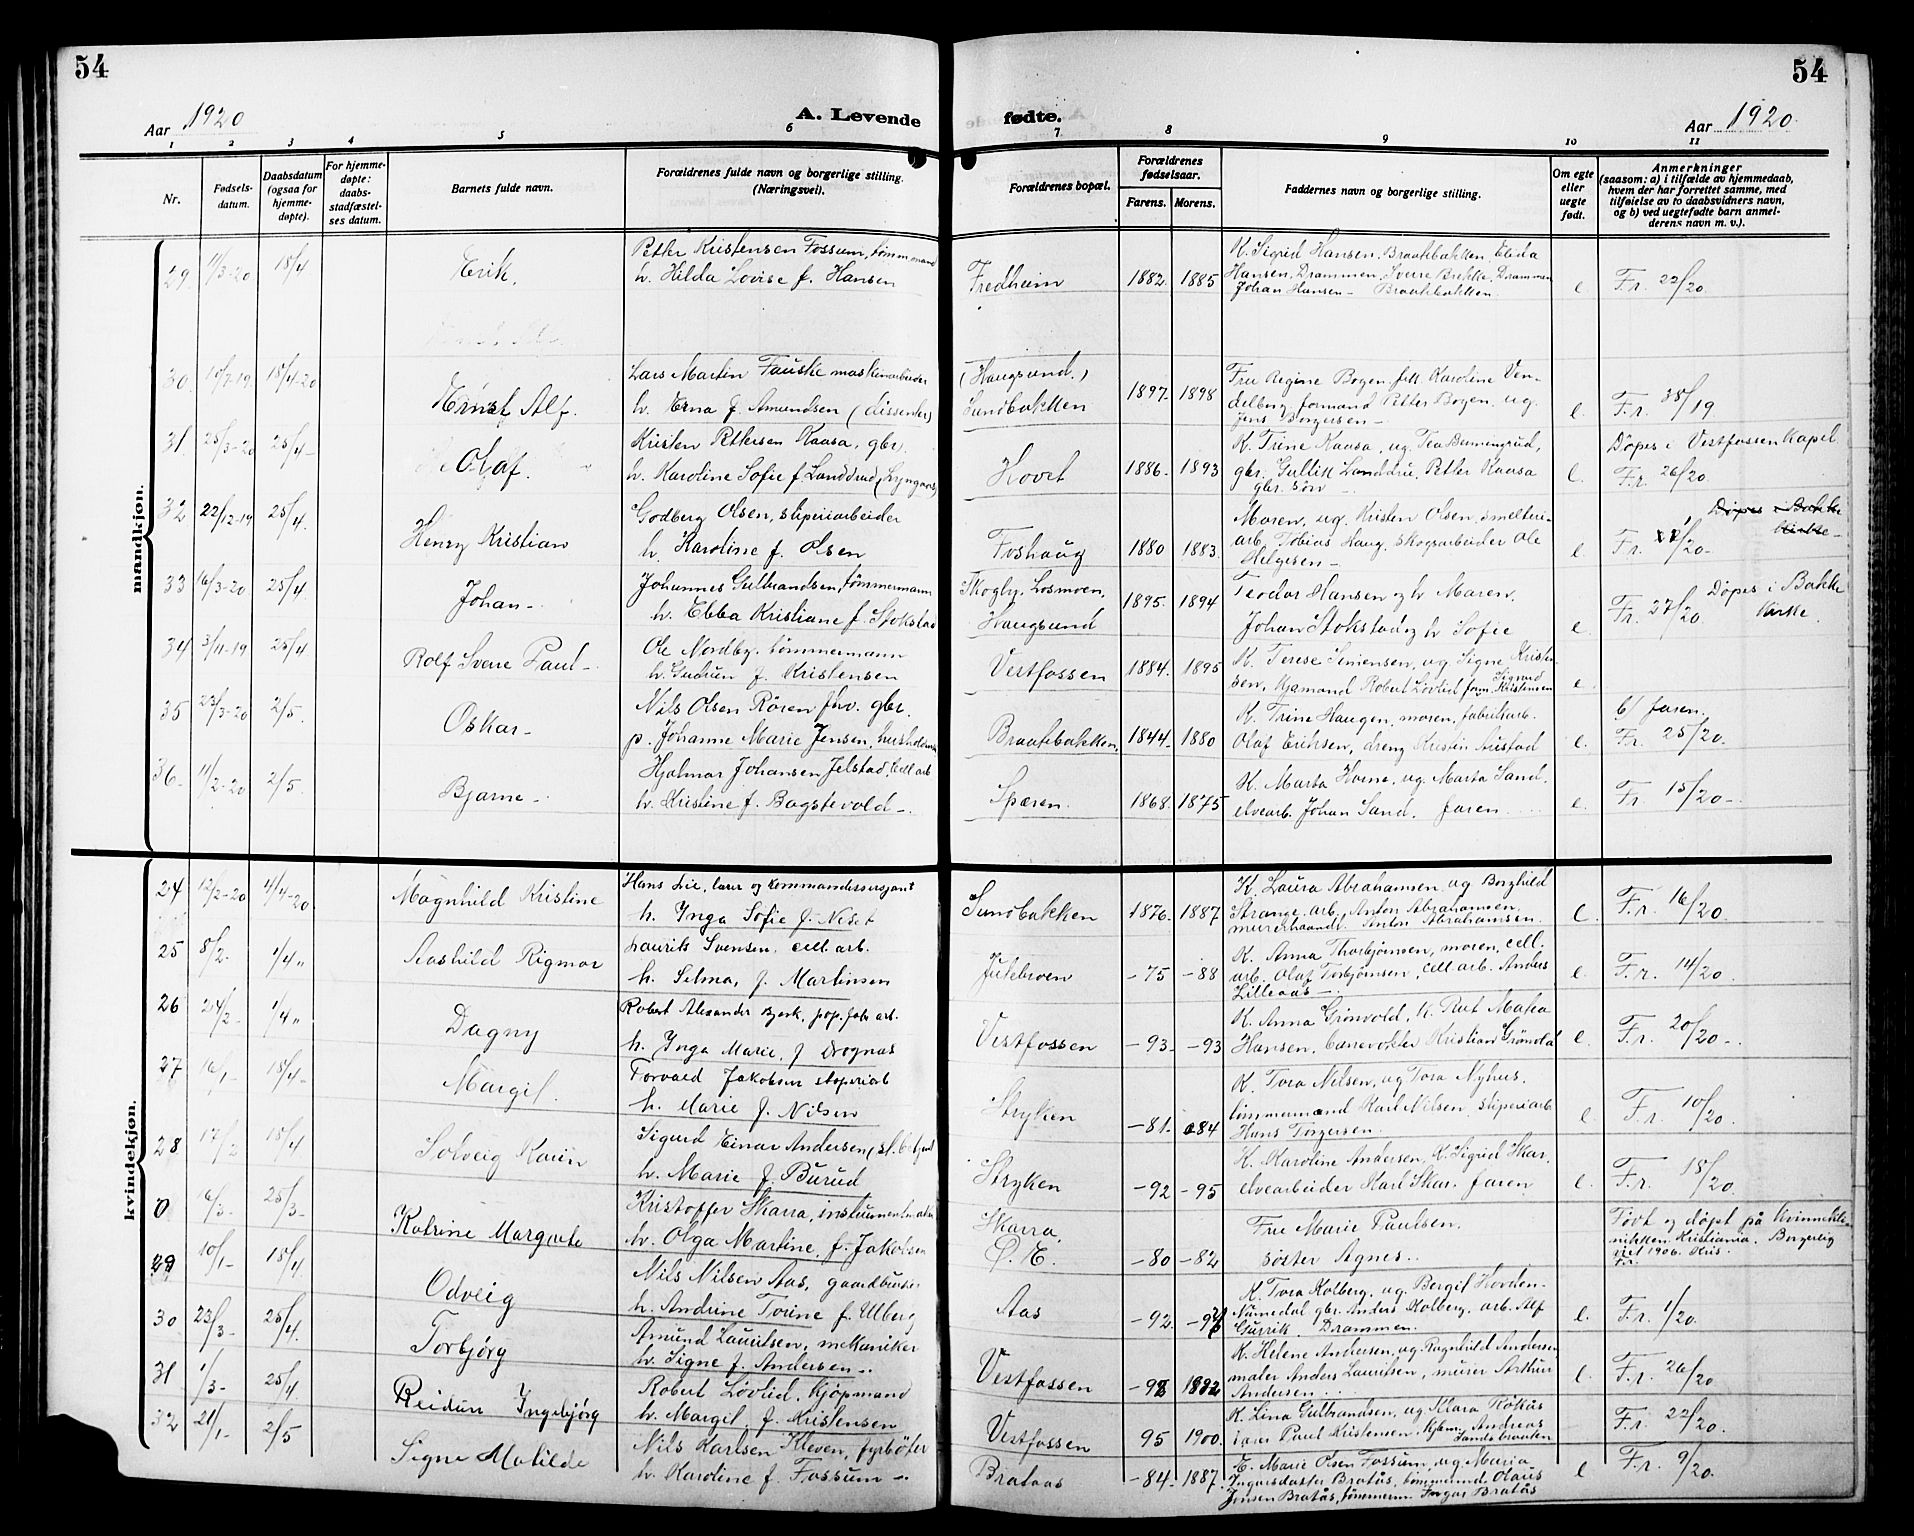 54
54
Aar 1920
A. Levende
fødte.
Aar 1920.
1 2 3 4 5 6 7 8 9 10 11
Nr.
Fødsels-
datum.
Daabsdatum
(ogsaa for
hjemme-
døpte).
For hjemme-
døpte:
daabs-
stadfæstel-
ses datum.
Barnets fulde navn.
Forældrenes fulde navn og borgerlige stilling.
(Næringsvei).
Forældrenes bopæl.
Forældrenes
fødselsaar.
Farens. Morens.
Faddernes navn og borgerlige stilling.
Om egte
eller
uegte
født.
Anmerkninger
(saasom: a) i tilfælde av hjemmedaab,
hvem der har forrettet samme, med
tilføielse av to daabsvidners navn,
og b) ved uegtefødte barn anmel-
derens navn m. v.).
mandkjøn.
29. 11/3-20 18/4 Erik. Petter Kristensen Fossum, tømmermand
h. Hilda Lovise f. Hansen Fredheim 1882 1885
K. Sigrid Hansen, Braatebakken,
Hansen, Drammen, Sverre Brekke, Drammen
Johan Hansen - Braatebakken. e Fr. 22/20.
30. 18/4-20 Ernst Alf. Lars Martin Fauske maskinarbeider
h. Erna f. Amundsen (dissenter) (Haugsund.)
Sundbakken 1897. 1898
Fru Regine Bogen, frk. Karoline Ven-
delborg, formand Petter Bogen, ug.
Jens Borgersen - e. Fr. 38/19
31. 25/3-20 25/4- Olaf. Kristen Pettersen Kaasa, gbr.
h. Karoline Sofie f. Landdrud Hovet 1886. 1893
K. Trine Kaasa, ug. Tea
gbr. Gullik Landdru, Petter Kaasa
gbr. søn - e. Døpes i Vestfossen Kapel
Fr. 26/20.
32 22/12-19 25/4. Henry Kristian Godberg Olsen, sliperiarbeider
h. Karoline f. Olsen Foshaug 1880 1883.
Moren, ug. Kristen Olsen, smelteri-
arb. Tobias Haug, skogsarbeider Ole
Helgesen - e. Døpes i Bakke
Kirke -
33 16/3-20 25/4. Johan - Johannes Gulbrandsen, tømmermann
h. Ebba Kristiane f. Stokstad Skogly, Losmoen,
Haugsund 1895. 1894
Teodor Hansen og h. Maren,
Johan Stokstad og h. Sofie e. Fr. 27/20. Døpes i Bakke
Kirke.
34 3/11-19 25/4 Rolf Sverre Paul - Ole Nordby, tømmermann
h. Gudrun f. Kristensen Vestfossen 1884. 1895
K. Terese Simensen, ug. Signe Kristen-
sen, kjøpmand Robert Løvlid, form. Sigurd Kristensen e.
35 23/3-20 2/5. Oskar - Nils Olsen Røren fhv. gbr.
p. Johanne Marie Jensen, husholderske Braatebakken, 1844- 1880
K. Trine Haugen, moren, fabrikarb.
Olaf Eriksen, dreng Kristin Austad e. b/ faren.
Fr. 25/20.
36. 11/2-20 2/5. Bjarne - Hjalmar Johansen Jelstad, Cell. arb
h. Kristine f. Bagstevold - Spæren. 1868. 1875
K. Marta Horne, ug. Marta Sand,
elvearb. Johan Sand, faren e. Fr. 15/20 -
kvindekjøn.
24 12/2-20 4/4-20 Magnhild Kristine Hans Lie, lærer og kommandersersjant
h. Inga Sofie f. Niset Sundbakken 1876. 1887
K. Laura Abrahamsen, ug Borghild
Strange, arb. Anton Abrahamsen,
murerhaandl. Anton Abrahamsen. e. Fr. 16/20.
25 8/2. 1/4 " Aashild Rigmor Laurits Svensen, cell. arb.
h. Selma, f. Martinsen Jutebroen - 75 - 88
K. Anna Thorbjørnsen, moren, cell.
arb. Olaf Torbjørnsen, cell. arb. Anders
Lilleaas - e. Fr. 14/20.
26 24/2- 1/4 " Dagny Robert Alexander Bjerk, pap.fabr. arb.
h. Inga Marie, f. Drognæs Vestfossen - 93. - 93
K. Anna Grønvold, K. Rut
Hansen, banevokter Kristian Grønvold e. Fr. 20/20 -
27 16/1- 18/4- Margit. Torvald Jakobsen sliperiarb
h. Marie f. Nilsen Stryken - 81. 84
K. Tora Nilsen, ug Tora Nyhus,
timmermand Karl Nilsen, sliperiarb
Hans Torgersen. e. Fr. 10/20.
28 17/2 18/4 Solveig Karin Sigurd Einar Andersen,
h. Marie f. Burud Stryken - 92 - 95
K. Karoline Andersen, K. Sigrid Skar,
elvearbeider Karl Skar, faren e. Fr. 18/20.
0 16/3- 25/3- Katrine Margrete Kristoffer Skarra, instrumentmaker
h. Olga Martine, f. Jakobsen Skarra,
Ø. E. - 80 - 82
Fru Marie Paulsen,
søster Agnes. Født og døpt på Kvinnekli-
nikken. Kristiania. Borgerlig
viet 1906. Kris.
29 10/1- 18/4 Odveig Nils Nilsen Aas, gaardbruker
h. Andrine Torine f. Ulberg Aas - 92
K. Tora Kolberg, ug. Bergit Hovden-
Numedal gbr. Anders Kolberg, arb. Alf
Gurrik. Drammen. e. Fr. 1/20.
30 23/3- 25/4. Torbjørg Amund Lauritsen, mekaniker
h. Signe f. Andersen - Vestfossen
K. Helene Andersen, ug. Ragnhild Andersen
maler Anders Lauritsen, murer Arthur
Andersen. e. Fr. 26/20
31 1/3- 25/4 Reidun Ingebjørg Robert Løvlid, kjøpmand
h. Margit, f. Kristensen Vestfossen 95 1900.
K. Lina Gulbrandsen, ug Klara Røkås
Paul Kristensen, kjøpm. Andreas
Fr. 22/20.
32 21/1- 2/5 Signe Matilde Nils Karlsen Kleven, fyrbøter
h. Karoline f. Fossum - Brataas - 84. 1887.
E. Marie Olsen Fossum, ug Maria
Ingvarsdatter Bratås, tømmermd. Olaus
Jensen Bratås, tømmerm. Ingvar Bratås e Fr. 9/20.